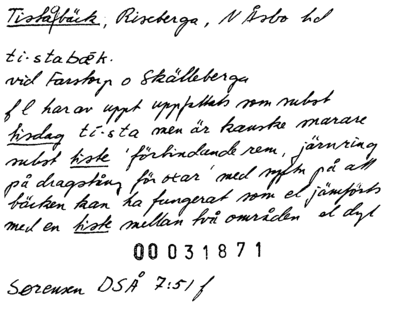 Tiståbäck, Riseberga, N Åsbo hd
ti·stabæk.
vid Farstorp o Skälleberga
f l har av uppt uppfattats som subst
tisdag ti·sta men är kanske snarare
subst tiste 'förbindande rem, järnring
på dragstång för oxar' med syftn på att
bäcken kan ha fungerat som el jämförts
med en tiste mellan två områden el dyl
00031871
Sørensen DSÅ 7:51 f